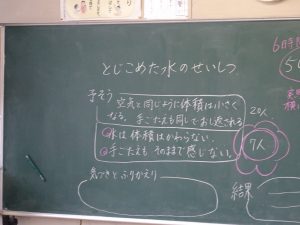 6時
とじこめた水のせいしつ
予そう
空気と同じように体積は小さく
なる。手ごたえも同じでおし返される
20人
水は体積はかわらない。
手ごたえもそのままで感じない。
7人
気づきとふりかえり
結果